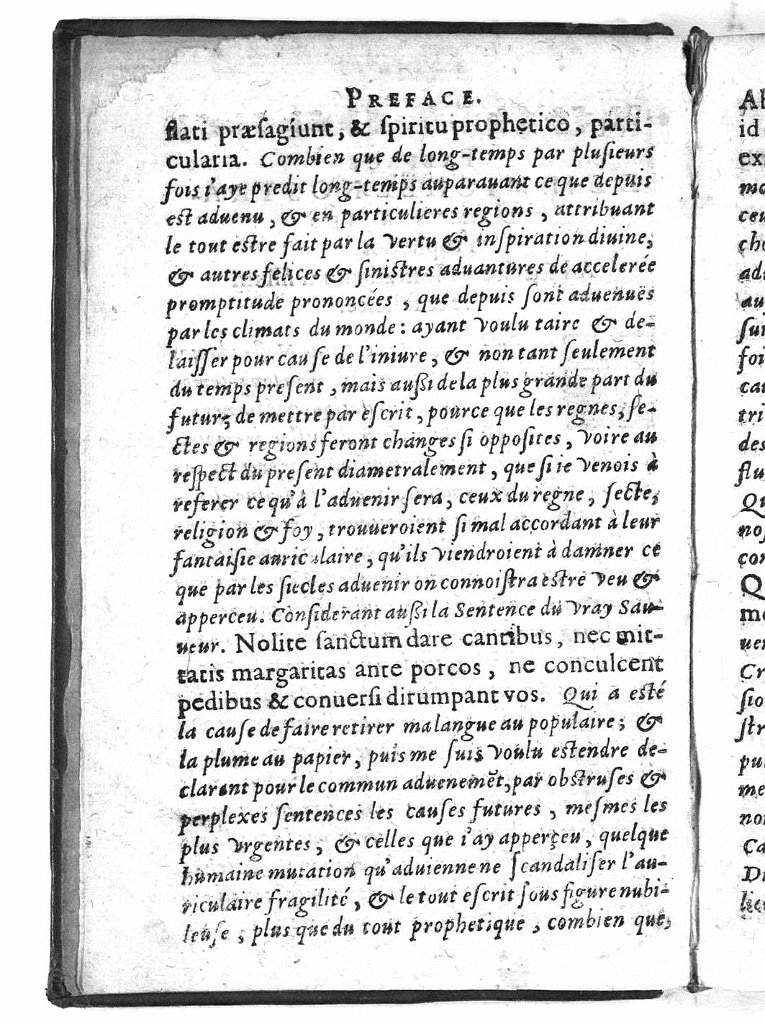 PREFACE.
flati præsagiunt, & spiritu prophetico, parti-
cularia. Combien que de long-temps par plusieurs
fois i'aye predit long-temps auparauant ce que depuis
est aduenu, & en particulieres regions, attribuant
le tout estre fait par la vertu & inspiration diuine,
& autres felices & sinistres aduantures de accelerée
promptitude prononcées, que depuis sont aduenuës
par les climats du monde: ayant voulu taire & de-
laisser pour cause de l'iniure, & non tant seulement
du temps present, mais aussi de la plus grande part du
futur, de mettre par escrit, pource que les regnes, se-
ctes & regions feront changes si opposites, voire au
respect du present diametralement, que si ie venois à
referer ce qu'à l'aduenir sera, ceux du regne, secte,
religion & foy, trouueroient si mal accordant à leur
fantaisie auriculaire, qu'ils viendroient à damner ce
que par les siecles aduenir on connoistra estre veu &
apperceu. Considerant aussi la Sentence du vray Sau-
ueur. Nolite sanctum dare canibus, nec mit-
tatis margaritas ante porcos, ne conculcent
pedibus & conuersi dirumpant vos. Qui a esté
la cause de faire retirer ma langue au populaire; &
la plume au papier, puis me suis voulu estendre de-
clarant pour le commun aduenemẽt, par obstruses &
perplexes sentences les causes futures, mesmes les
plus vrgentes, & celles que i'ay apperçeu, quelque
humaine mutation qu'aduienne ne scandaliser l'au-
riculaire fragilité, & le tout escrit sous figure nubi-
leuse, plus que du tout prophetique, combien que,